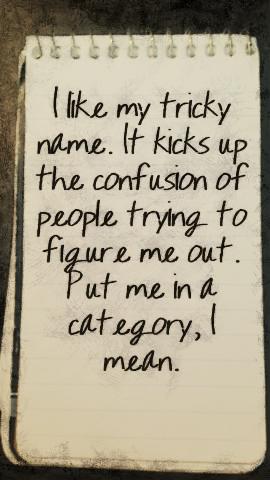 I like my tricky
name. It kicks up
the confusion of
people trying to
figure me out.
Put me in a
category, I
mean.